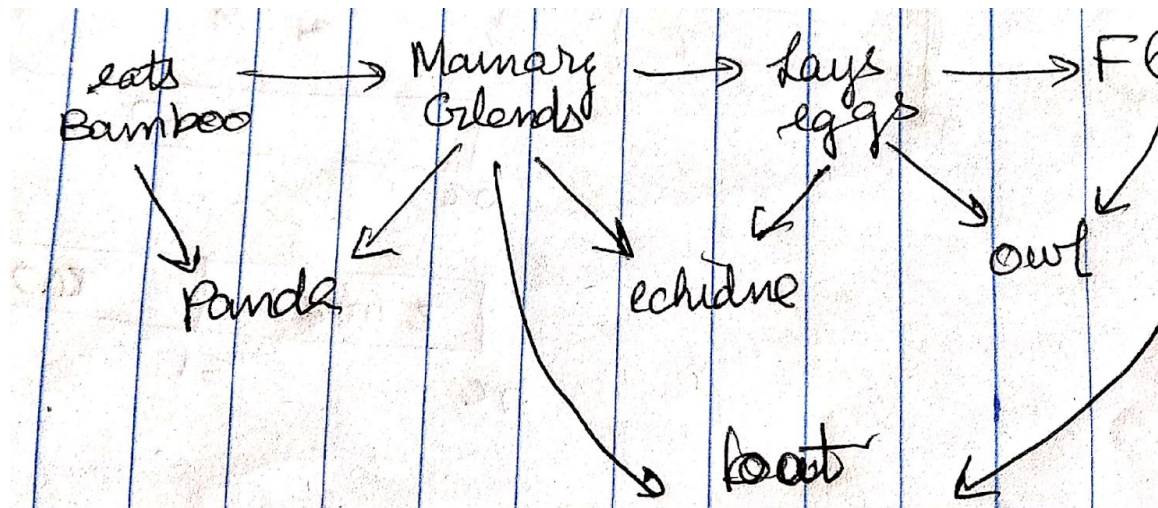 eats
Bamboo
Mamary
Glends
Lays
eggs
Fl
Panda
echidne
owl
baat